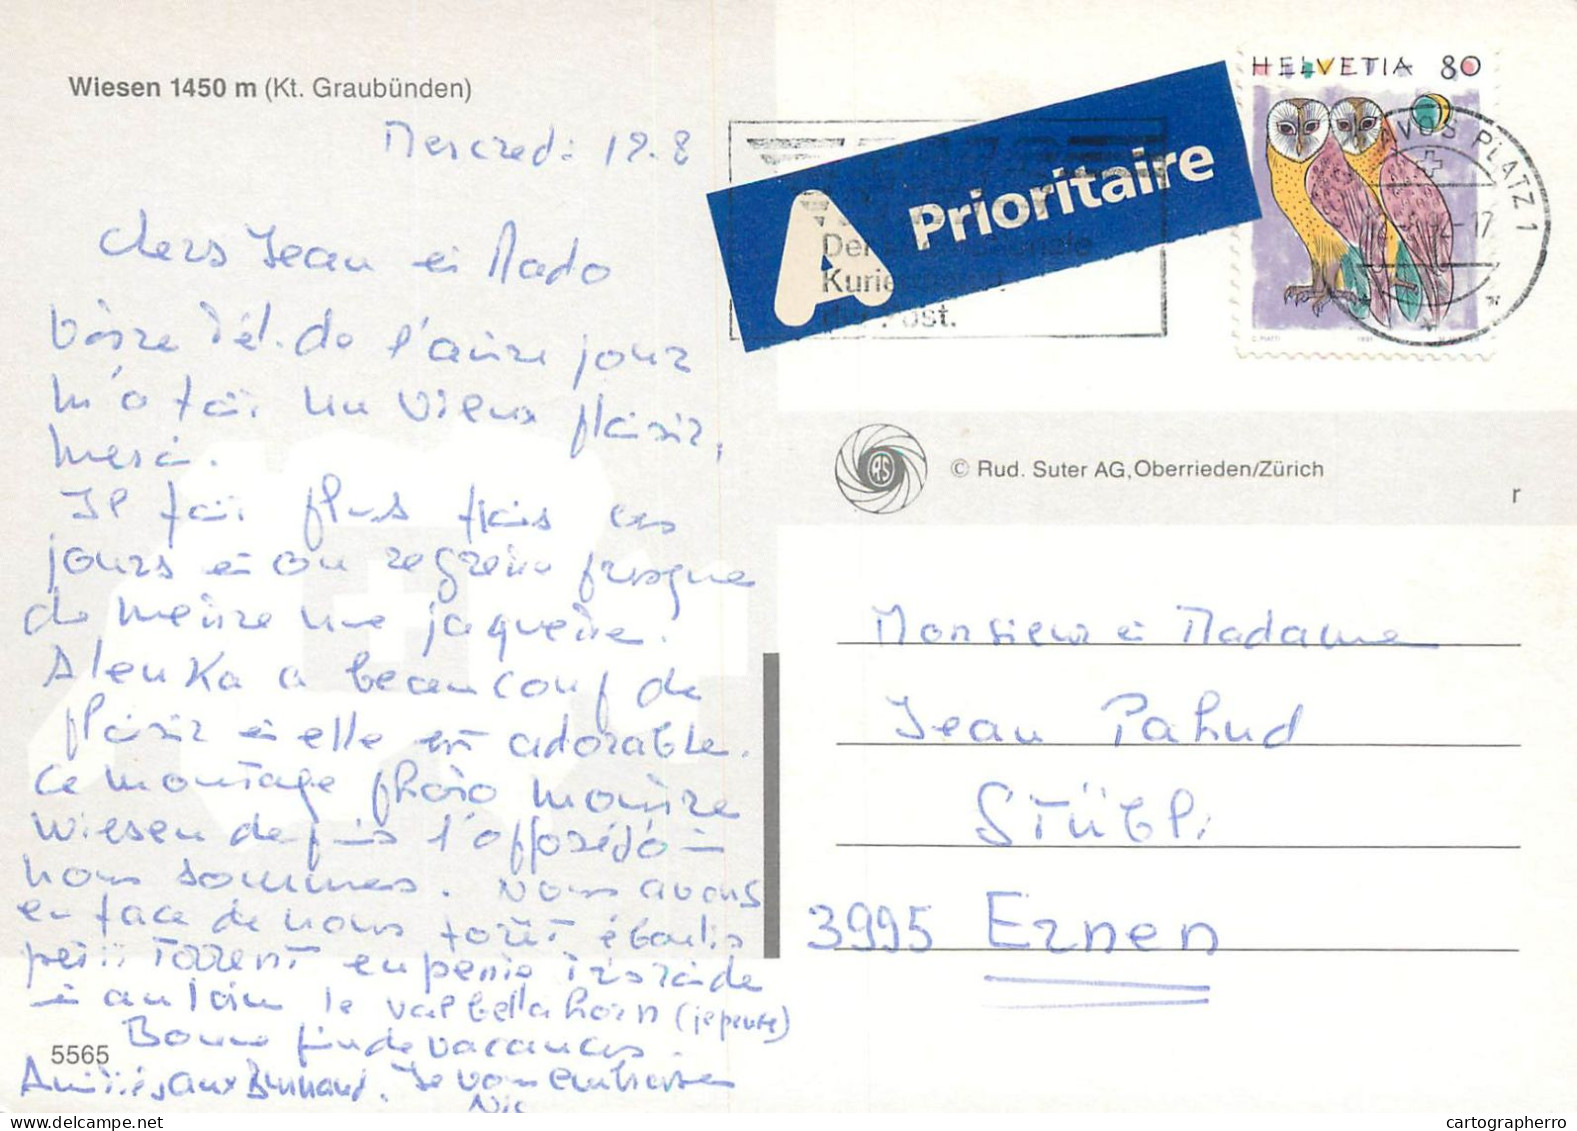 Wiesen 1450 m (Kt. Graubünden)
Mercredi 19.8
Chers Jean et Mado
Votre tél. de l'autre jour
m'a fait un vieux plaisir,
merci.
Il fait plus frais ces
jours et on regrette presque
de mettre une jaquette.
Alenka a beaucoup de
plaisir et elle est adorable.
Ce montage photo montre
Wiesen depuis l'opposé d'où
nous sommes. Nous avons
en face de nous forêt éboulis
petit torrent en pente très raide
et au loin le valbellahorn (je pense)
Bonne fin de vacances.
Amitiés aux Burnand. Je vous embrasse
Nic
5565
HELVETIA 80
A Prioritaire
Kurier
der Post.
VOS PLATZ 1
92-17
RS
© Rud. Suter AG, Oberrieden/Zürich
r
Monsieur et Madame
Jean Pahud
Stübli
3995 Ernen
cartographerro